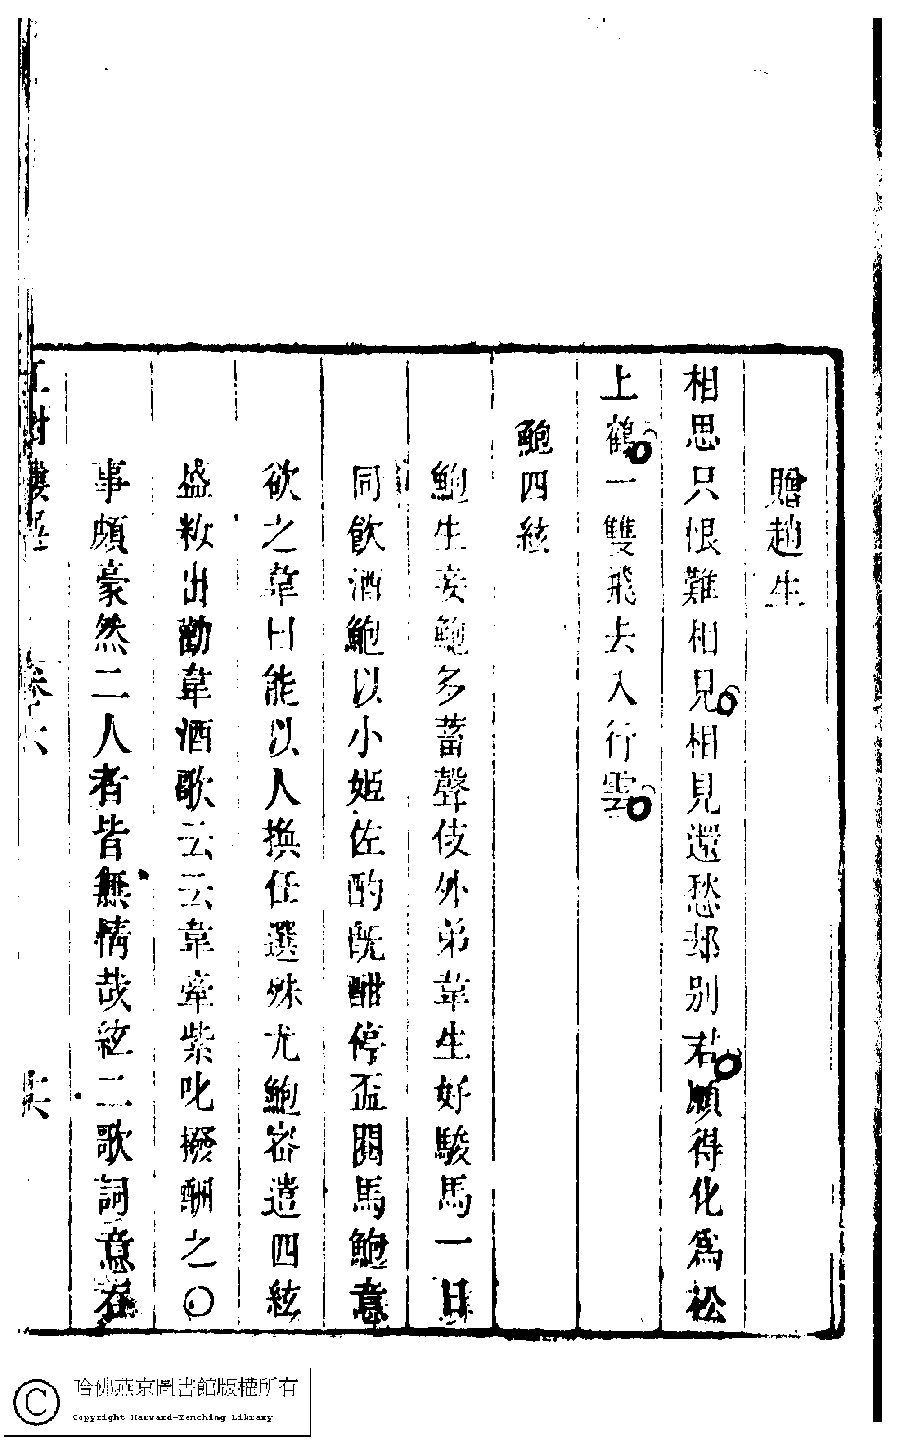 贈趙生
相思只恨難相見相見還愁却別君願得化爲松
上鶴一雙飛去入行雲
鮑四絃
鮑生妾鮑多蓄聲伎外弟韋生好駿馬一日
同飲酒鮑以小姬佐酌既酣停盃閱馬鮑意
欲之韋曰能以人換任選殊尤鮑密遣四絃
盛粧出勸韋酒歌云云韋牽紫叱撥酬之○
事頗豪然二人者皆無情哉絃二歌詞意在
卷六
哈佛燕京圖書館版權所有
Copyright Harvard-Yenching Library